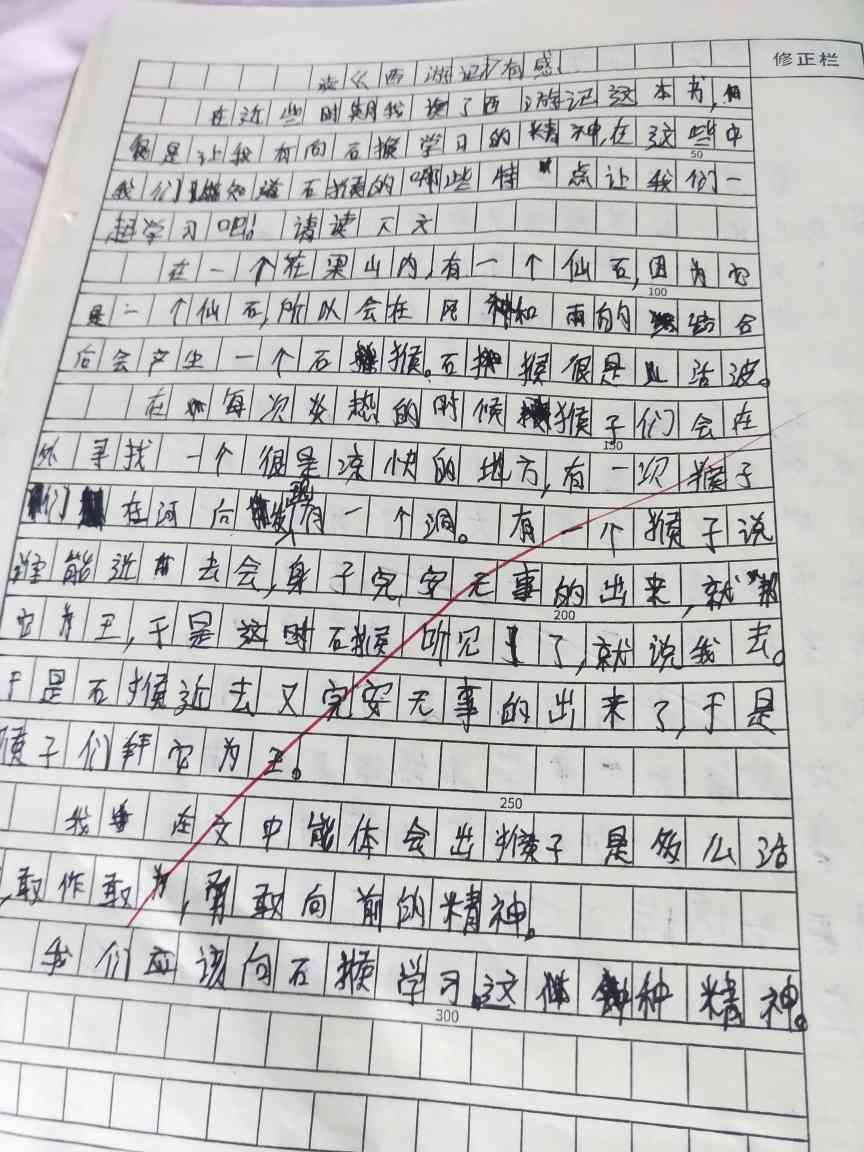 修正栏
读《西游记》有感
在近些时期我读了西游记这本书,但
是让我有向石猴学习的精神,在这些中
50
我们能知道石猴的哪些特点让我们一
起学习吧!请读下文
在一个花果山内,有一个仙石,因为它
100
是一个仙石,所以会在风和雨的结合
后会产生一个石猴。石猴很是活波。
在每次炎热的时候猴子们会在
150
寻找一个很是凉快的地方,有一次猴子
们在河后发现有一个洞。有一个猴子说
谁能近去会,身子完安无事的出来,就
200
它为王,于是这时石猴听见了,就说我去。
于是石猴近去又完安无事的出来了,于是
猴子们拜它为王。
250
我在文中能体会出猴子是多么活
,敢作敢为,勇敢向前的精神。
我们应该向石猴学习,这种精神。
300